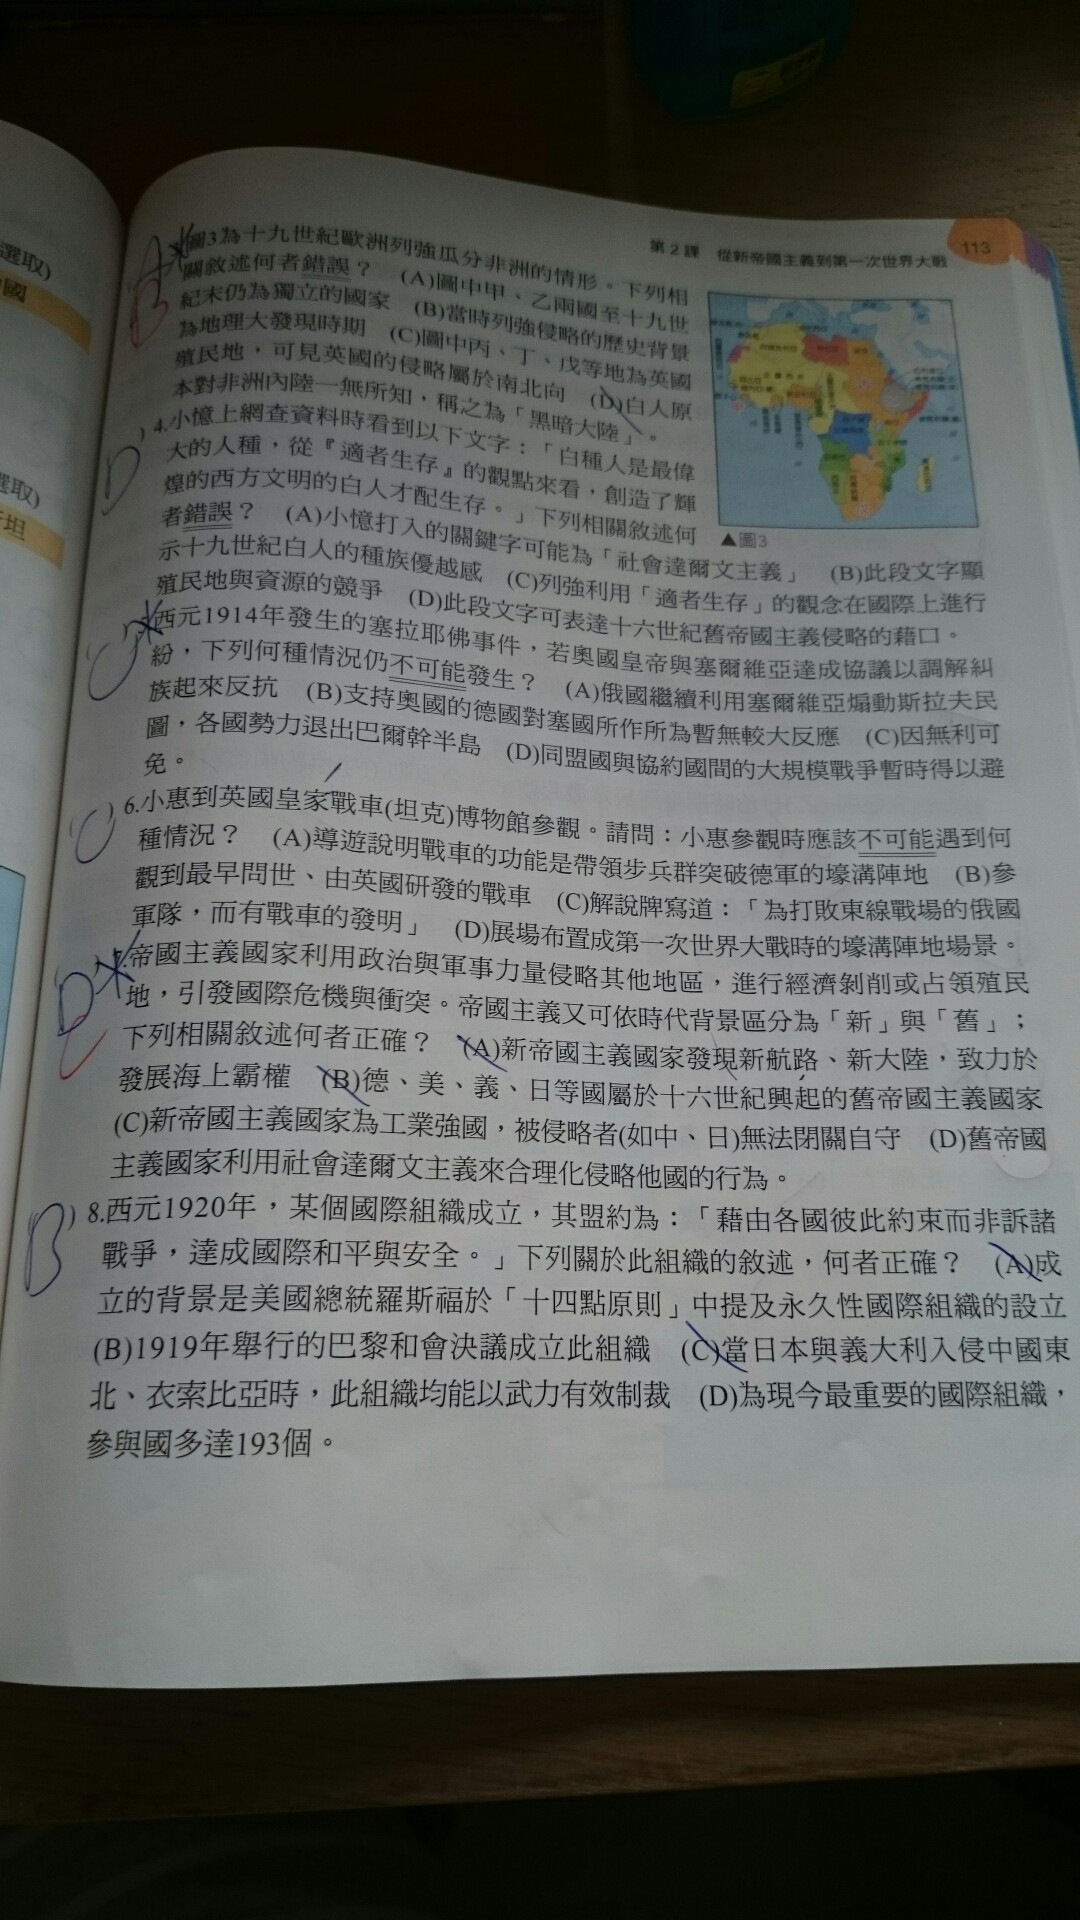 第2課 從新帝國主義到第一次世界大戰 113
選取)
國
選取)
坦
圖3為十九世紀歐洲列強瓜分非洲的情形。下列相
關敘述何者錯誤? (A)圖中甲、乙兩國至十九世
紀末仍為獨立的國家 (B)當時列強侵略的歷史背景
為地理大發現時期 (C)圖中丙、丁、戊等地為英國
殖民地,可見英國的侵略屬於南北向 (D)白人原
本對非洲內陸一無所知,稱之為「黑暗大陸」。
▲圖3
D )4.小憶上網查資料時看到以下文字:「白種人是最偉
大的人種,從『適者生存』的觀點來看,創造了輝
煌的西方文明的白人才配生存。」下列相關敘述何
者錯誤? (A)小憶打入的關鍵字可能為「社會達爾文主義」 (B)此段文字顯
示十九世紀白人的種族優越感 (C)列強利用「適者生存」的觀念在國際上進行
殖民地與資源的競爭 (D)此段文字可表達十六世紀舊帝國主義侵略的藉口。
C )西元1914年發生的塞拉耶佛事件,若奧國皇帝與塞爾維亞達成協議以調解糾
紛,下列何種情況仍不可能發生? (A)俄國繼續利用塞爾維亞煽動斯拉夫民
族起來反抗 (B)支持奧國的德國對塞國所作所為暫無較大反應 (C)因無利可
圖,各國勢力退出巴爾幹半島 (D)同盟國與協約國間的大規模戰爭暫時得以避
免。
C )6.小惠到英國皇家戰車(坦克)博物館參觀。請問:小惠參觀時應該不可能遇到何
種情況? (A)導遊說明戰車的功能是帶領步兵群突破德軍的壕溝陣地 (B)參
觀到最早問世、由英國研發的戰車 (C)解說牌寫道:「為打敗東線戰場的俄國
軍隊,而有戰車的發明」 (D)展場布置成第一次世界大戰時的壕溝陣地場景。
D 帝國主義國家利用政治與軍事力量侵略其他地區,進行經濟剝削或占領殖民
地,引發國際危機與衝突。帝國主義又可依時代背景區分為「新」與「舊」;
下列相關敘述何者正確? (A)新帝國主義國家發現新航路、新大陸,致力於
發展海上霸權 (B)德、美、義、日等國屬於十六世紀興起的舊帝國主義國家
(C)新帝國主義國家為工業強國,被侵略者(如中、日)無法閉關自守 (D)舊帝國
主義國家利用社會達爾文主義來合理化侵略他國的行為。
B )8.西元1920年,某個國際組織成立,其盟約為:「藉由各國彼此約束而非訴諸
戰爭,達成國際和平與安全。」下列關於此組織的敘述,何者正確? (A)成
立的背景是美國總統羅斯福於「十四點原則」中提及永久性國際組織的設立
(B)1919年舉行的巴黎和會決議成立此組織 (C)當日本與義大利入侵中國東
北、衣索比亞時,此組織均能以武力有效制裁 (D)為現今最重要的國際組織,
參與國多達193個。